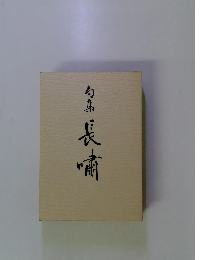 句集
長嘯